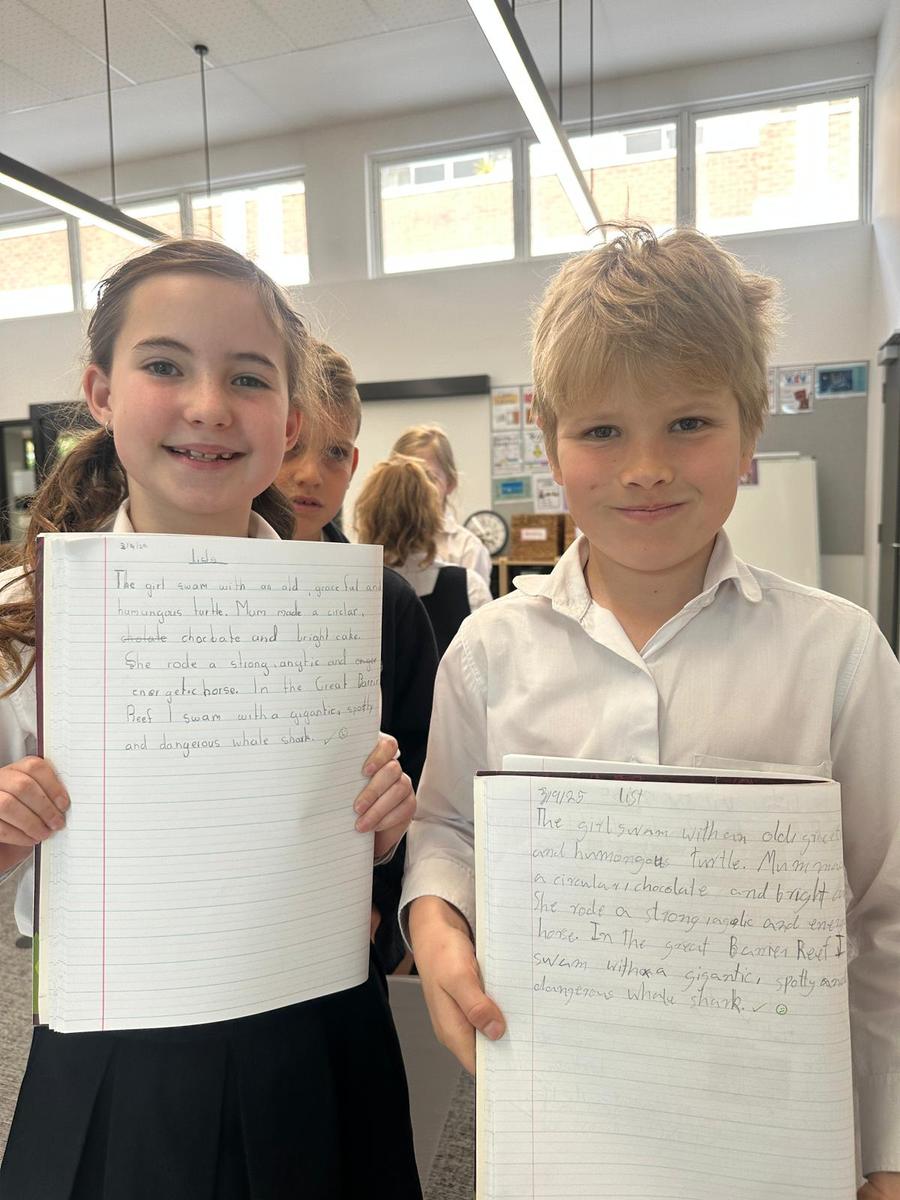 3/9/25
Lists
The girl swam with an old, graceful and
humungous turtle. Mum made a circlar,
cholate chocbate and bright cake.
She rode a strong, angtic and
energetic horse. In the Great Barrie
Reef I swam with a gigantic, spotty
and dangerous whale shark. ✓ ☺
3/9/25 list
The girl swam with an old, grace
and humongous turtle. Mum ma
a circular, chocolate and bright
She rode a strong, and ener
horse. In the great Barrier Reef I
swam with a gigantic, spotty and
dangerous whale shark. ✓ ☺